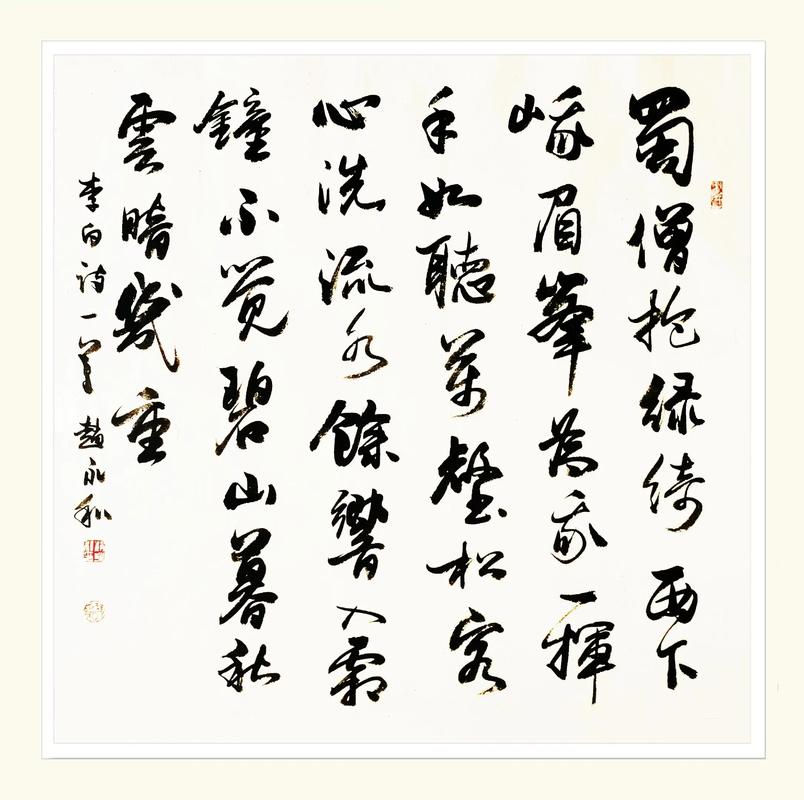 蜀僧抱綠綺西下
峨眉峯為我一揮
手如聽萬壑松客
心洗流水餘響入霜
鐘不覺碧山暮秋
雲暗幾重
李白詩一首 趙永和